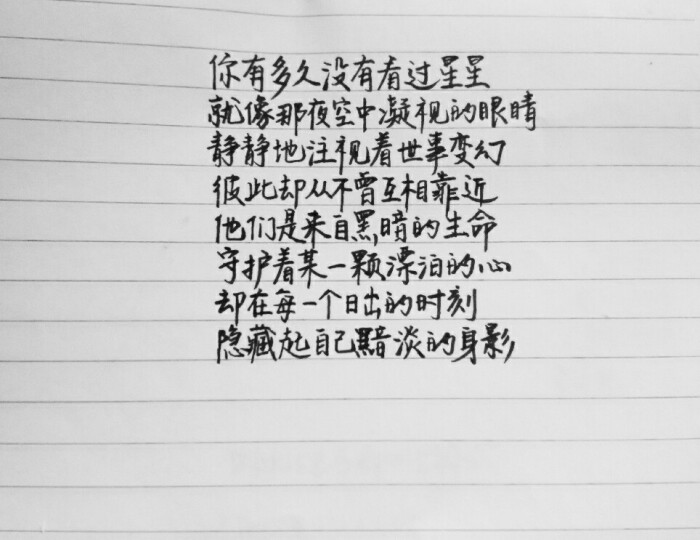 你有多久没有看过星星
就像那夜空中凝视的眼睛
静静地注视着世事变幻
彼此却从不曾互相靠近
他们是来自黑暗的生命
守护着某一颗漂泊的心
却在每一个日出的时刻
隐藏起自己黯淡的身影